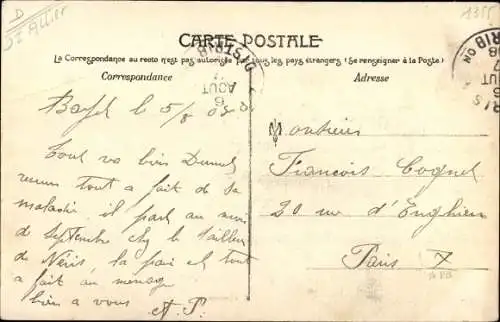 D
St Allier
1355
CARTE POSTALE
La Correspondance au recto n'est pas autorisée par tous les pays étrangers (Se renseigner à la Poste)
Correspondance
Adresse
DISTRIB
6
AOUT
PARIS
DISTRIBON
6
AOUT
07
le 5/8
Monsieur
Tout va bien
François Coquet
revenu tout a fait de sa
maladie. il part au mois
20 rue d'Enghien
de Septembre chez le tailleur
de Néris, la paie et tout
Paris X
a fait au menage
bien a vous A.P.